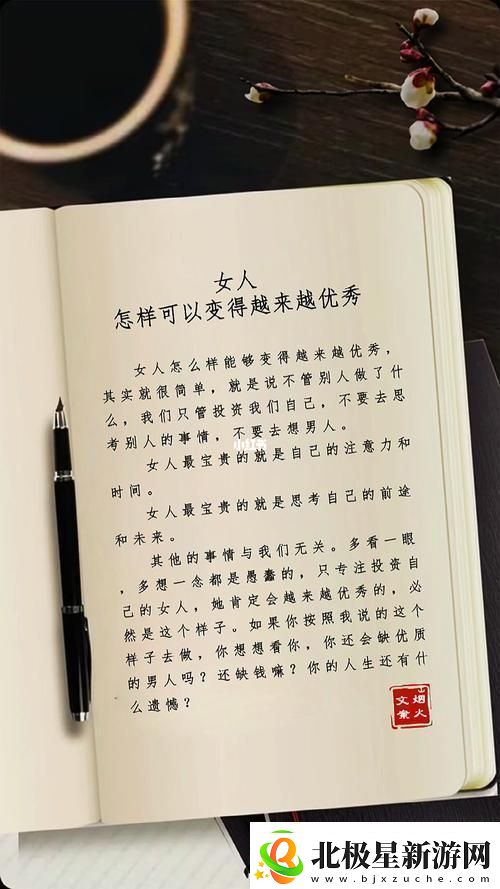 女人
怎样可以变得越来越优秀
女人怎么样能够变得越来越优秀，
其实就很简单，就是说不管别人做了什
么，我们只管投资我们自己，不要去思
考别人的事情，不要去想男人。
小红书
女人最宝贵的就是自己的注意力和
时间。
女人最宝贵的就是思考自己的前途
和未来。
其他的事情与我们无关。多看一眼
，多想一念都是愚蠢的，只专注投资自
己的女人，她肯定会越来越优秀的，必
然是这个样子。如果你按照我说的这个
样子去做，你想想看你，你还会缺优质
的男人吗？还缺钱嘛？你的人生还有什
么遗憾？
烟火
文案
北极星新游网
www.bjxzuche.com